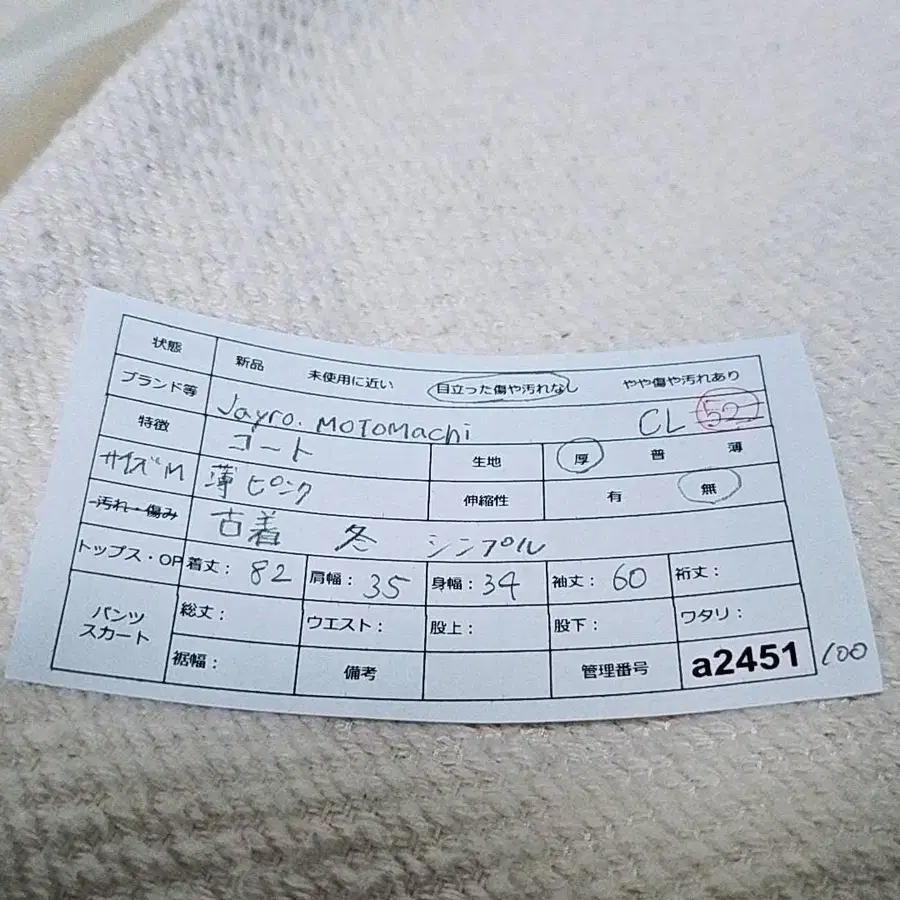 状態 新品 未使用に近い 目立った傷や汚れなし やや傷や汚れあり
ブランド等 Jayro. MOTOMachi CL 52
特徴 コート 生地 厚 普 薄
サイズM 薄ピンク 伸縮性 有 無
汚れ・傷み 古着 冬 シンプル
トップス・OP 着丈: 82 肩幅: 35 身幅: 34 袖丈: 60 裄丈:
パンツ スカート 総丈: ウエスト: 股上: 股下: ワタリ:
裾幅: 備考 管理番号 a2451 100